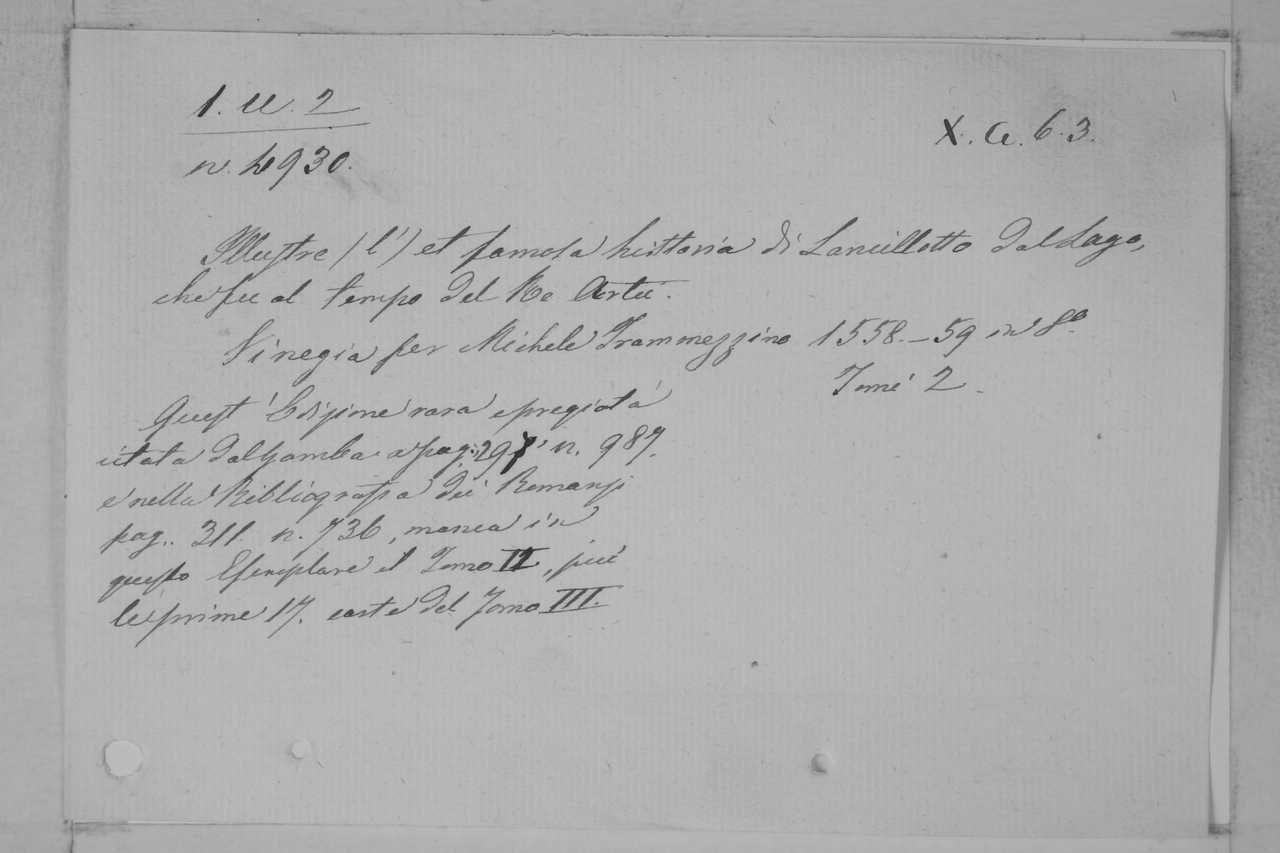 1. U. 2
X. a. 6. 3.
n. 4930.
Illustre (l') et famosa historia di Lancillotto dal Lago,
che fu al tempo del Re Artù.
Vinegia per Michele Tramezzino 1558.-59 in 8º
Tomi 2.
Quest'Edizione rara e pregiata
citata dal Gamba a pag: 297 n. 987.
e nella Bibliografia dei Romanzi
pag.. 311. n. 736, manca in
questo Esemplare il Tomo II, più
le prime 17. carte del Tomo III.